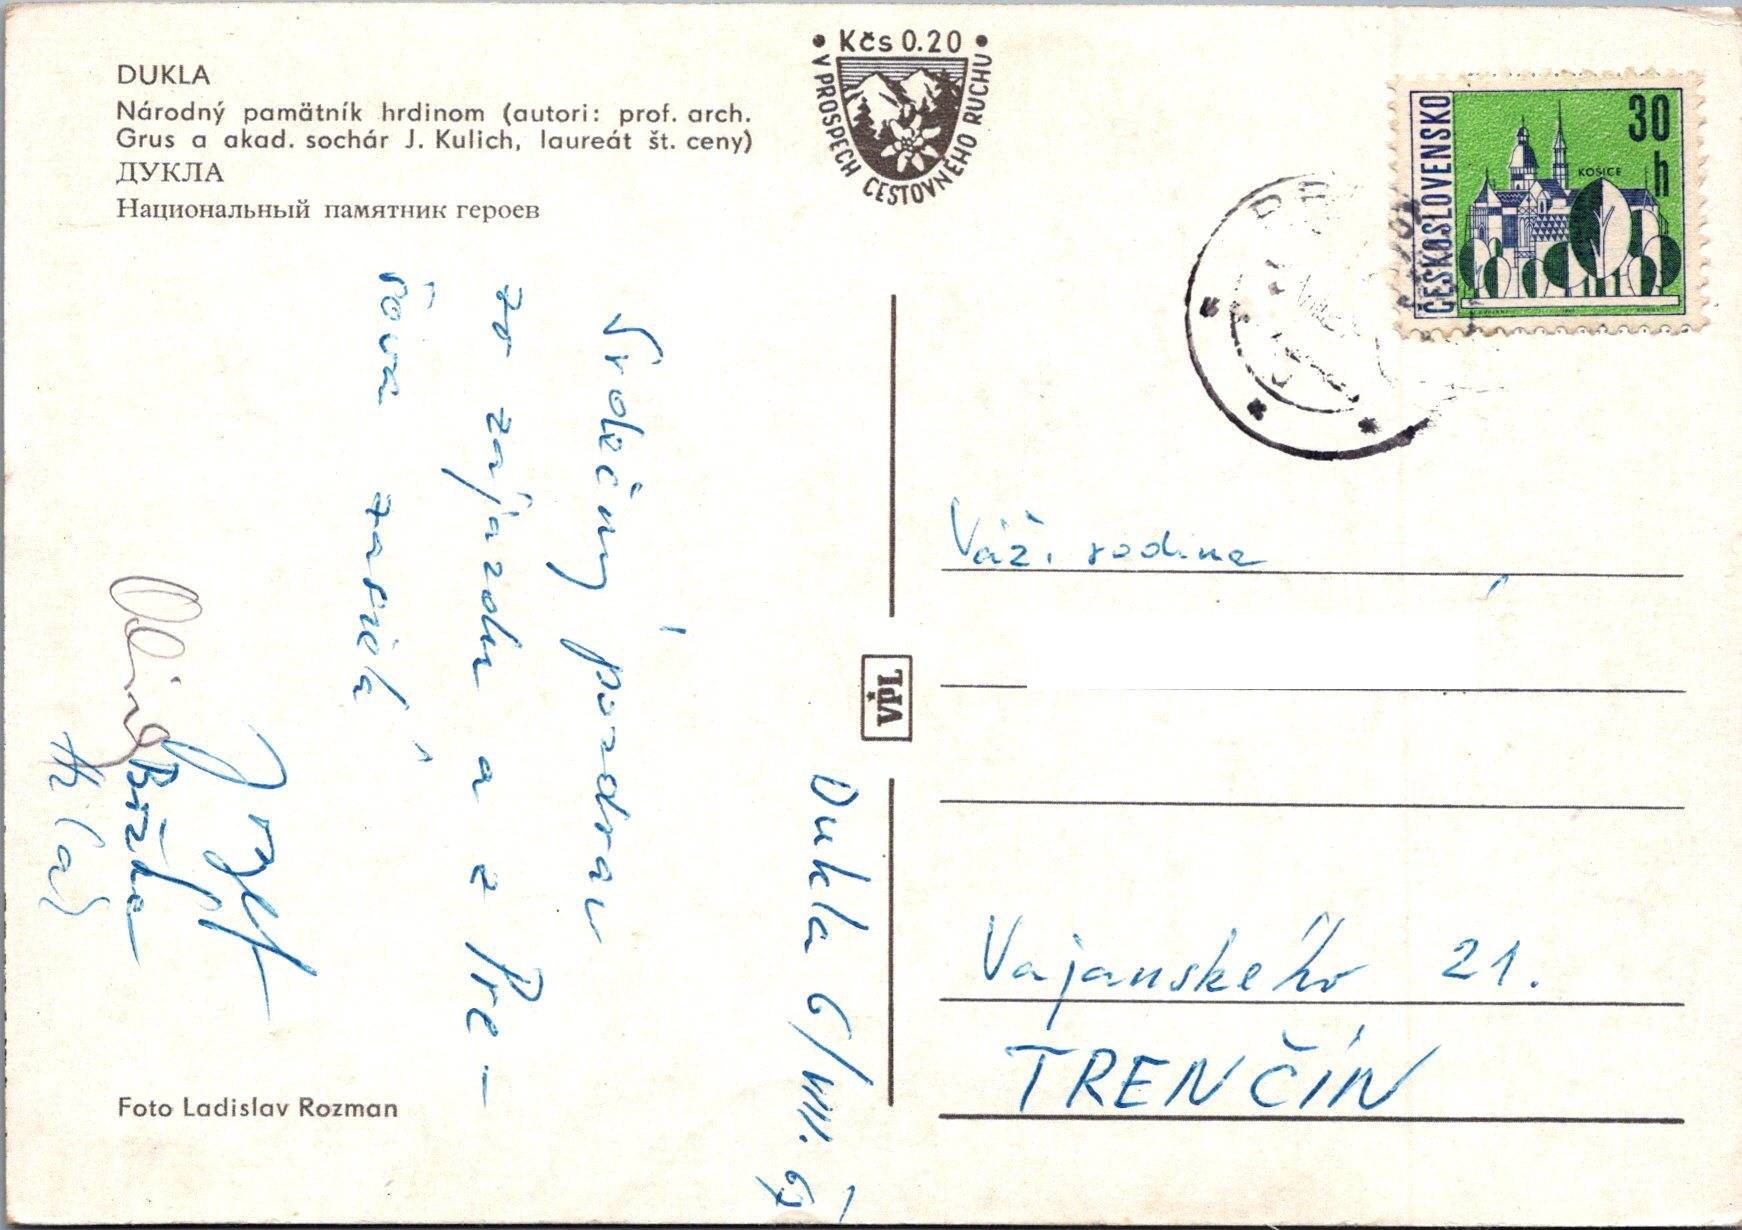 DUKLA
Národný pamätník hrdinom (autori: prof. arch.
Grus a akad. sochár J. Kulich, laureát št. ceny)
ДУКЛА
Национальный памятник героев
• Kčs 0.20 •
V PROSPECH CESTOVNÉHO RUCHU
ČESKOSLOVENSKO
30
h
KOŠICE
Dukla 6/VIII.
Srdečný pozdrav
zo zájazdu a z Pre-
šova zasiela
Božka
VPL
Váž. rodina
Vajanského 21.
TRENČÍN
Foto Ladislav Rozman